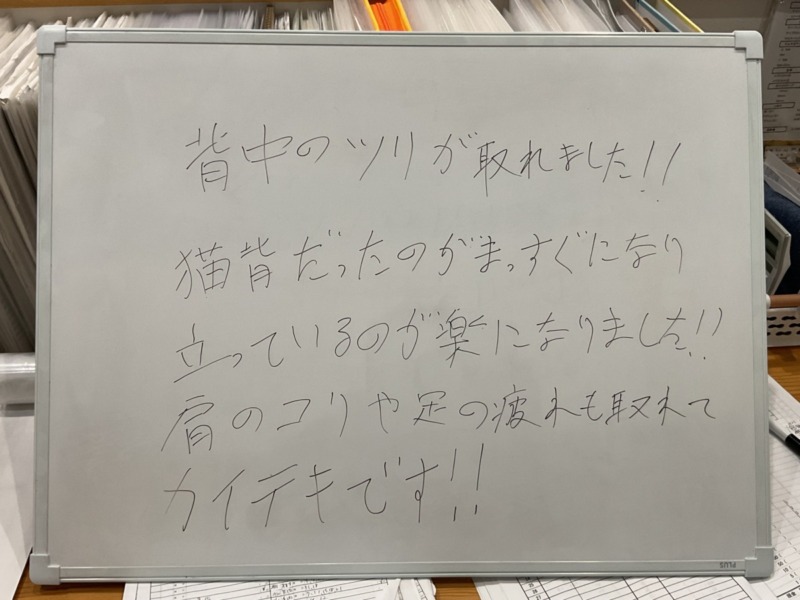 背中のツリが取れました!!
猫背だったのがまっすぐになり
立っているのが楽になりました!!
肩のコリや足の疲れも取れて
カイテキです!!
PLUS